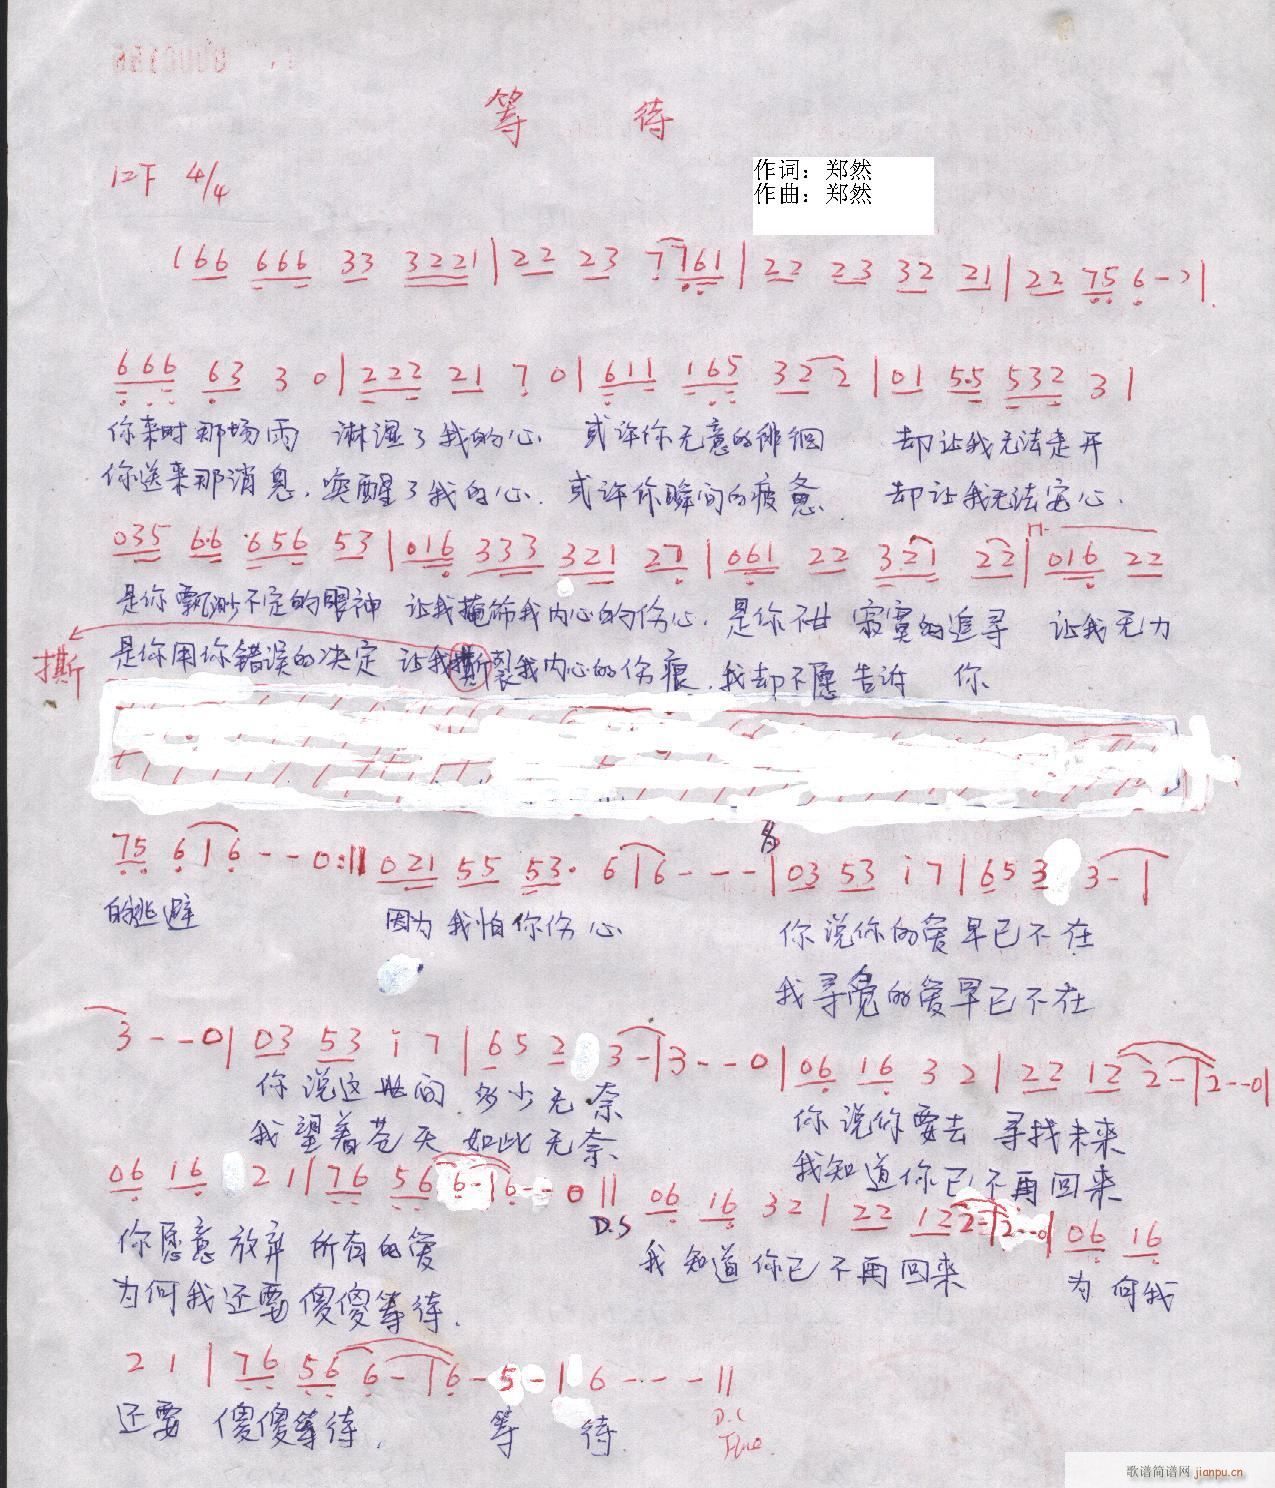 等 待
1=F 4/4
作词：郑然
作曲：郑然
166 666 33 3221 | 22 23 7 761 | 22 23 32 21 | 22 75 6 - - |
666 63 3 0 | 222 21 7 0 | 611 165 32 2 | 01 5·5 532 3 |
你来时那场雨 淋湿了我的心 或许你无意的徘徊 却让我无法走开
你送来那消息. 唤醒了我的心. 或许你瞬间的疲惫 却让我无法安心.
035 6·6 656 53 | 016 333 321 27 | 061 22 321 22 | 016 22
是你飘渺不定的眼神 让我掩饰我内心的伤心. 是你不甘 寂寞的追寻 让我无力
撕 是你用你错误的决定 让我撕裂我内心的伤痕. 我却不愿告诉 你
75 6 | 6 - - 0 :|| 021 55 53· 6 | 6 - - - | 03 53 i 7 | 65 3 3 - |
的逃避 因为我怕你伤心 你说你的爱早已不在
我寻觅的爱早已不在
3 - - 0 | 03 53 i 7 | 65 2 3 - | 3 - - 0 | 06 16 3 2 | 22 12 2 - | 2 - - 0 |
你说这世间 多少无奈 你说你要去 寻找未来
我望着苍天 如此无奈 我知道你已不再回来
06 16 2 1 | 76 56 6 - | 6 - - 0 || 06 16 3 2 | 22 12 2 - | 2 - - 0 | 06 16
D.S
你愿意放弃 所有的爱 我知道你已不再回来 为何我
为何我还要傻傻等待.
2 1 | 76 56 6 - | 6 - 5 - | 6 - - - ||
还要 傻傻等待. 等 待 D.C
Fine.
歌谱简谱网 jianpu.cn